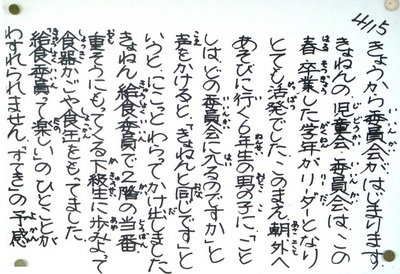 4/15
きょうから委員会がはじまります。
きょねんの児童会・委員会は、この
春卒業した学年がリーダーとなり
とても活発でした。このまえ朝、外へ
あそびに行く6年生の男の子に、「こと
しは、どの委員会に入るのですか」と
声をかけると、「きょねんと同じです」と
いうと、にこっとわらってかけ出しました。
きょねん給食委員で2階の当番
重そうにもってくる下級生に歩みよって
食器かごや食缶をもってました。
給食委員って楽しい」のひとことが
わすれられません。「すき」の予感